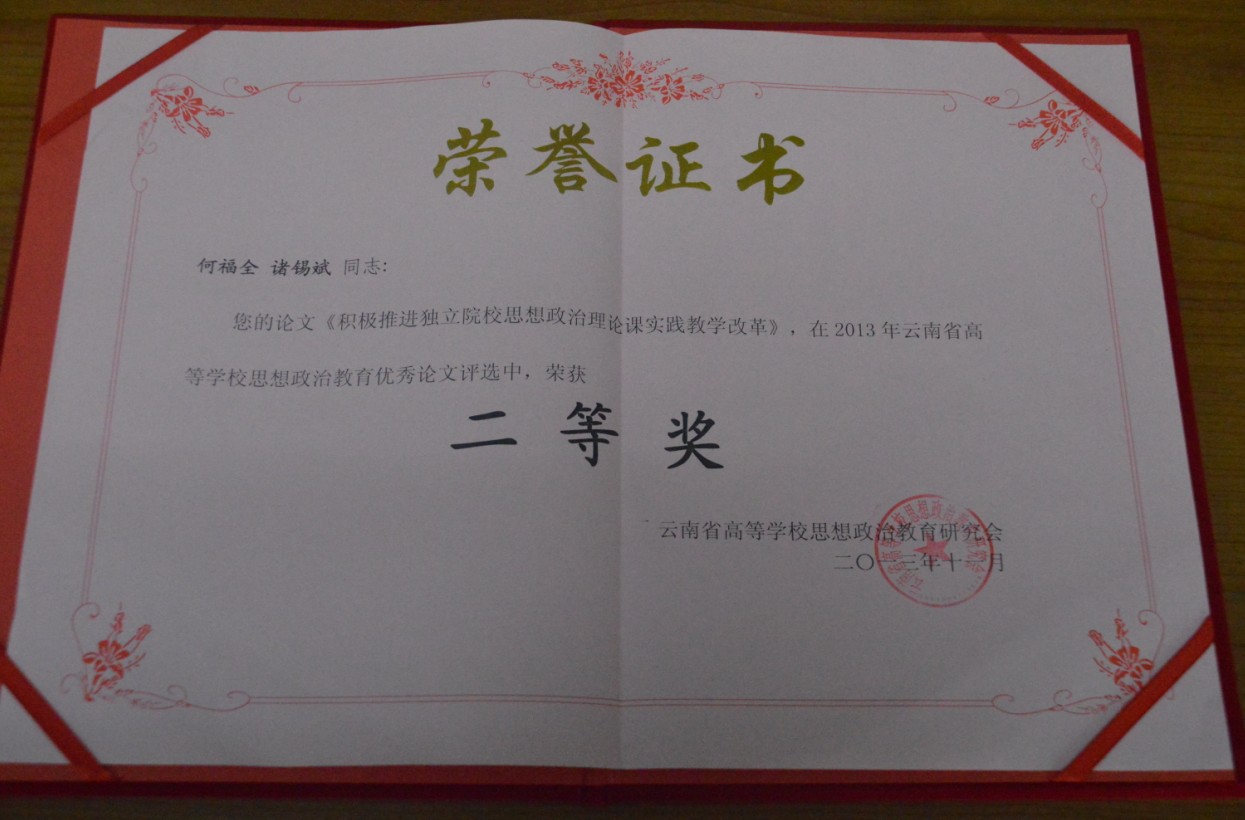 荣誉证书
何福全 诸锡斌 同志:
您的论文《积极推进独立院校思想政治理论课实践教学改革》，在 2013 年云南省高
等学校思想政治教育优秀论文评选中，荣获
二等奖
云南省高等学校思想政治教育研究会
二〇一三年十一月